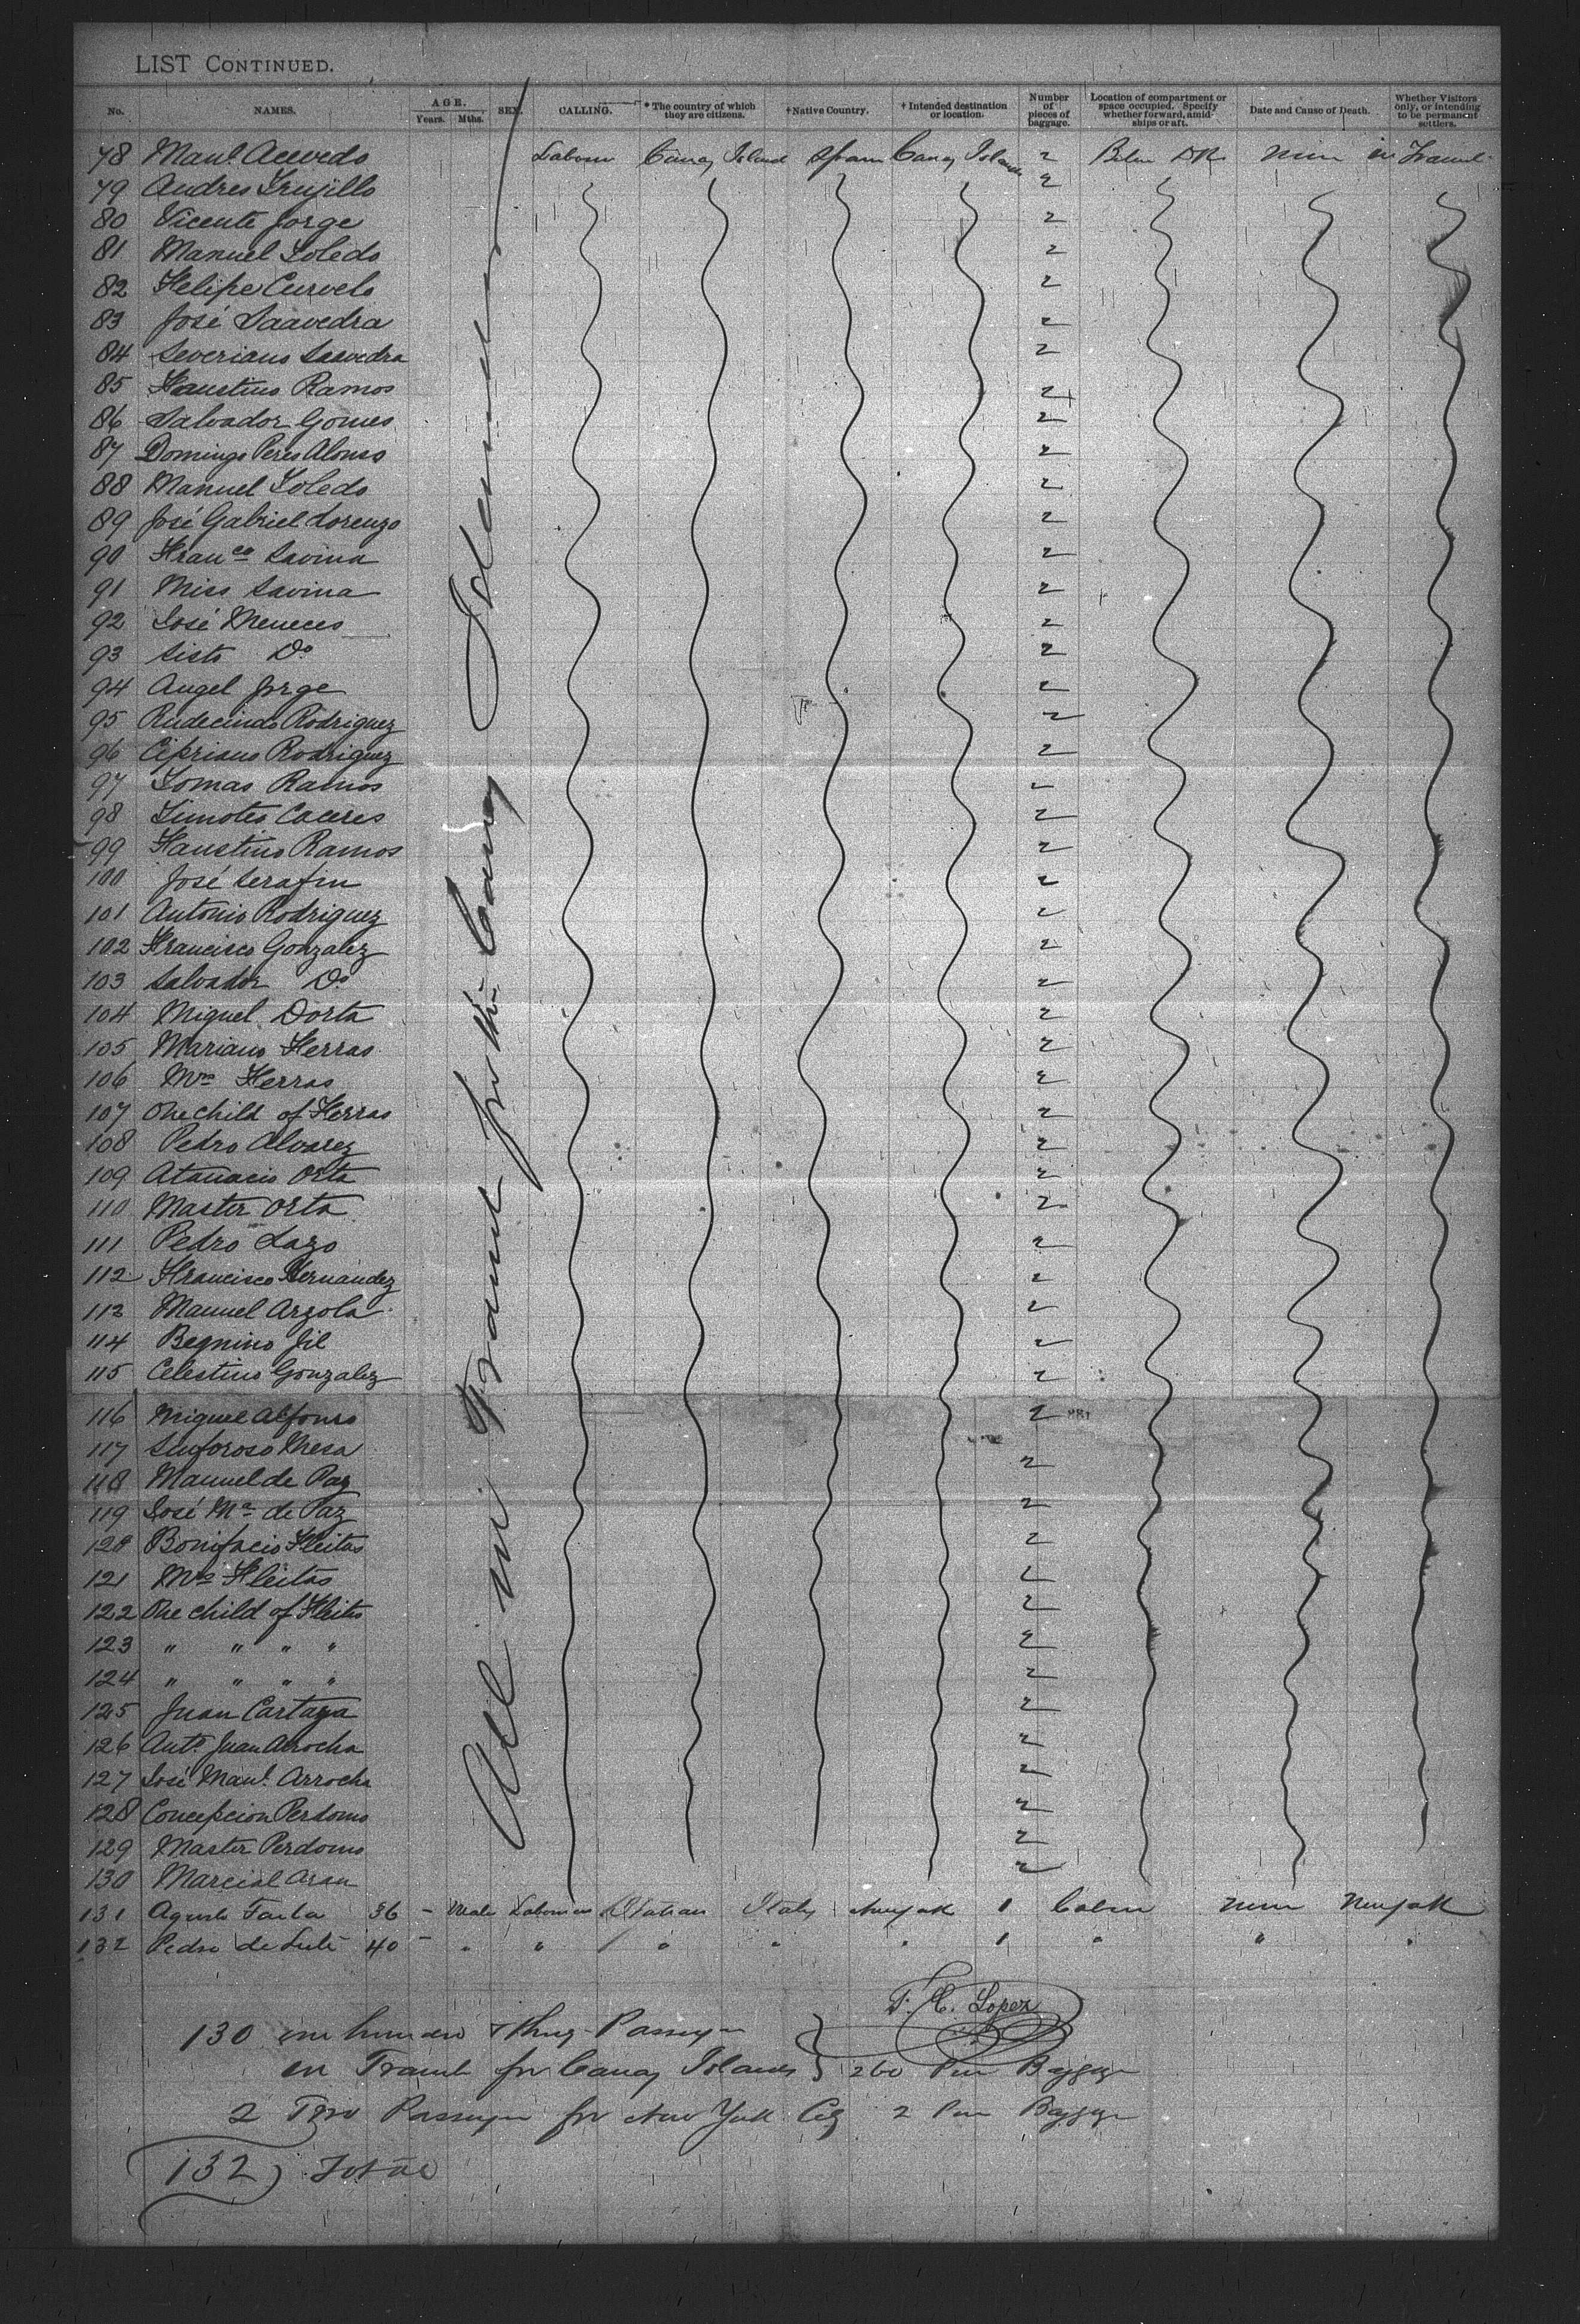 LIST CONTINUED.
No. NAMES. AGE. Years. Mths. SEX. CALLING. * The country of which they are citizens. † Native Country. † Intended destination or location. Number of pieces of baggage. Location of compartment or space occupied. Specify whether forward, amid-ships or aft. Date and Cause of Death. Whether Visitors only, or intending to be permanent settlers.
78 Manl. Acevedo Canary Island Spain Canary Islands 2 in Transit
79 Andres Trujillo 2
80 Vicente Jorge 2
81 Manuel Toledo 2
82 Felipe Curvelo 2
83 José Saavedra 2
84 Severiano Saavedra 2
85 Faustino Ramos 2
86 Salvador Gomes 2
87 Domingo Peres Alonso 2
88 Manuel Toledo 2
89 José Gabriel Lorenzo 2
90 Franco Savina 2
91 Miss Savina 2
92 José Meneces 2
93 Sisto Do 2
94 Angel Jorge 2
95 Rudecindo Rodriguez 2
96 Cipriano Rodriguez 2
97 Tomas Ramos 2
98 Timoteo Caceres 2
99 Faustino Ramos 2
100 José Serafin 2
101 Antonio Rodriguez 2
102 Francisco Gonzalez 2
103 Salvador Do 2
104 Miguel Dorta 2
105 Mariano Herras 2
106 Mrs Herras 2
107 One child of Herras 2
108 Pedro Alvarez 2
109 Atanacio Orta 2
110 Master Orta 2
111 Pedro Lazo 2
112 Francisco Hernandez 2
113 Manuel Arzola 2
114 Begnino Jil 2
115 Celestino Gonzalez 2
116 Miguel Alfonso 2
117 Sinforoso Mesa 2
118 Manuel de Paz
119 José Ma de Paz 2
120 Bonifacio Fleitas 2
121 Mrs Fleitas 2
122 One child of Fleitas 2
123 " " " " 2
124 " " " " 2
125 Juan Cartaya 2
126 Anto Juan Arrocha 2
127 José Manl. Arrocha 2
128 Concepcion Perdomo 2
129 Master Perdomo 2
130 Marcial Aran 2
All in Transit for the Canary Islands
131 36 - Male Italian Italy New York 1 Colon New York
132 Pedro de 40 - " " " " " 1 " " "
F. C. Lopez
130 one hundred & thirty Passengers
in Transit for Canary Islands } 260 Baggage
2 Two Passengers for New York City 2 Baggage
132 Total